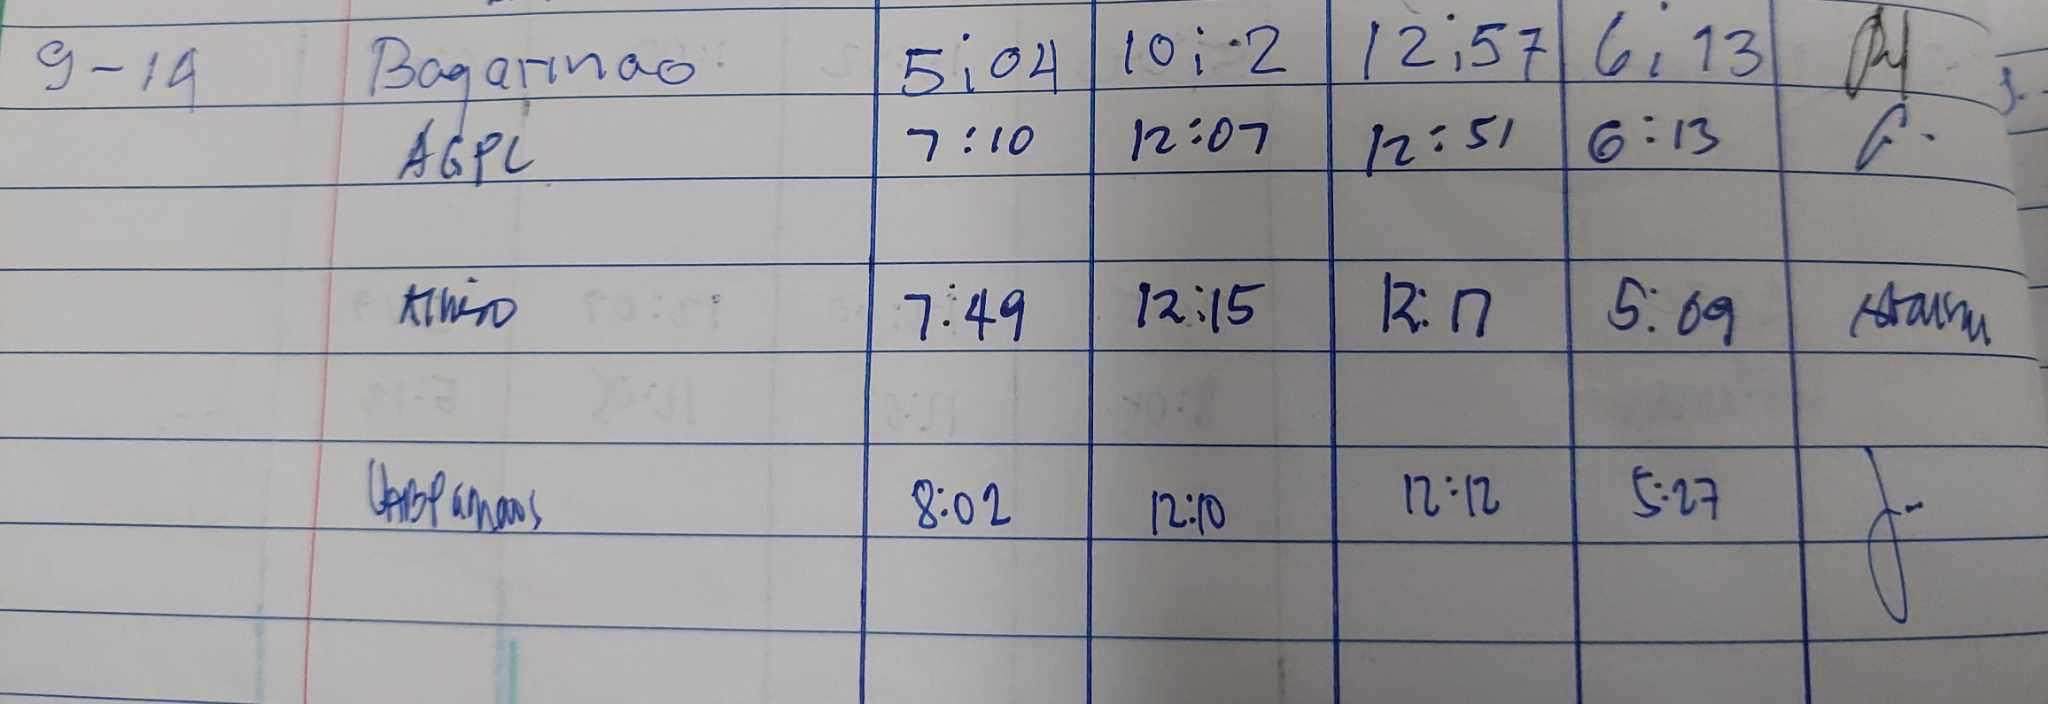 9-14 Bagarinao 5:04 10:2 12:57 6:13
AGPL 7:10 12:07 12:51 6:13
7:49 12:15 12:17 5:09
8:02 12:10 12:12 5:27